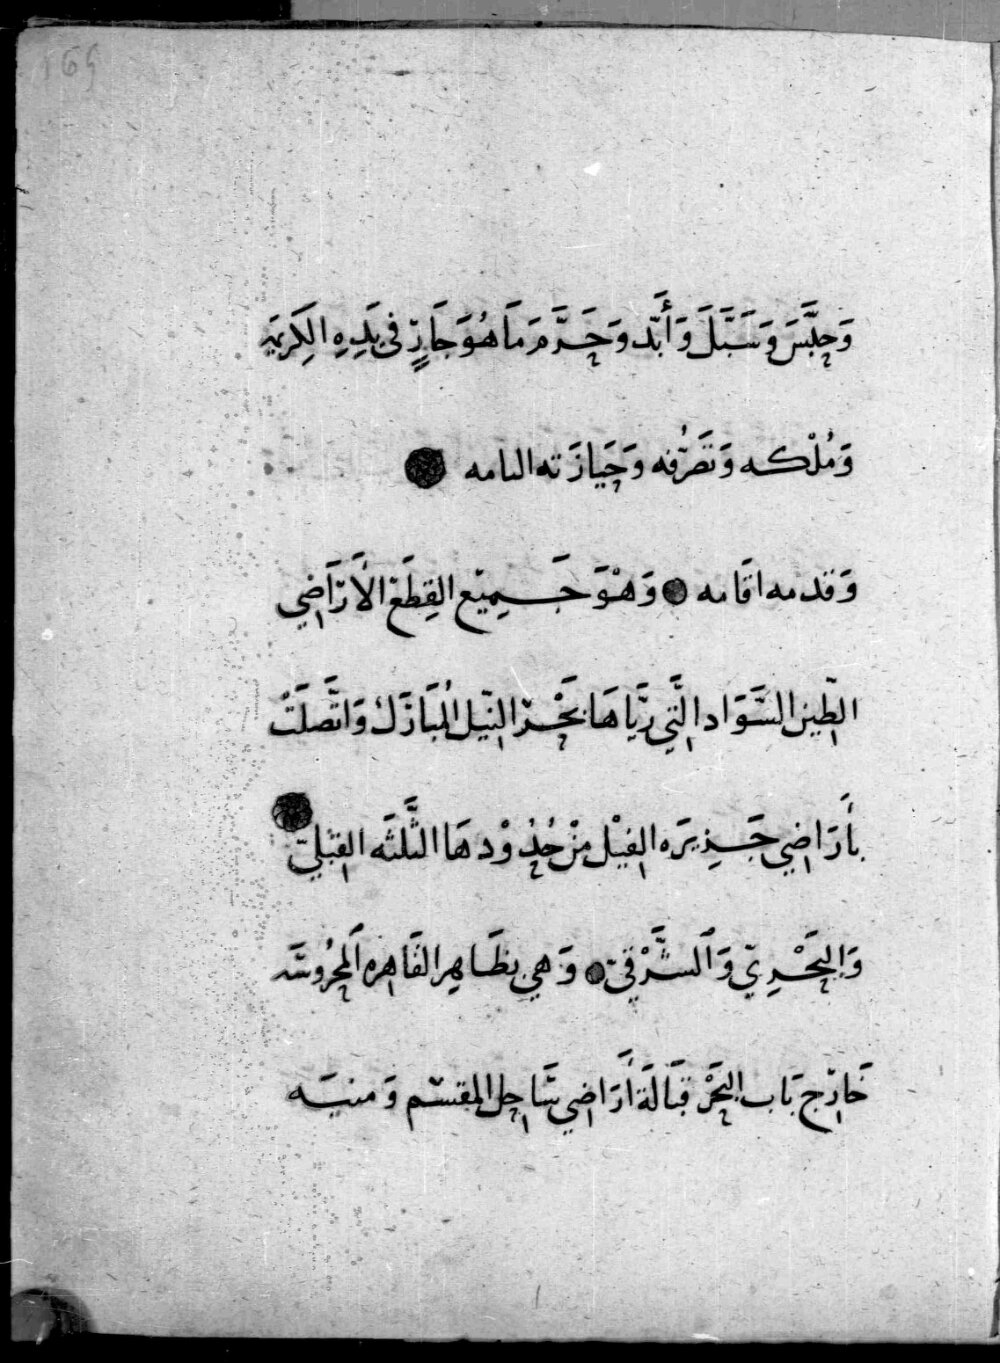 165
وَحَبَّسَ وَسَبَّلَ وَأَبَّد وَحَرَّمَ مَا هُوَ جَارٍ فِي يَدِهِ الكَرِيمَه
وَمُلْكه وَتَصَرُّفه وَحِيَازَته التامه
وَقدمه اقَامه وَهْوَ جَمِيع القِطَع الأَرَاضِي
الطِّين السَّوَاد الَّتِي رَيَّاهَا بَحْر النِّيل المُبَارَك وَاتَّصَلَتْ
بأَرَاضِي جَزِيرَه الفِيْل مِنْ حُدُوْدهَا الثَّلثَه القبْلِيّ
وَالبَحْرِيّ وَالشَّرْقيّ وَهي بظَاهِر القَاهِره المحرُوسَه
خَارِج بَاب البَحْر قبَالَة أَرَاضِي سَاحِل المقسَم وَمنيَه